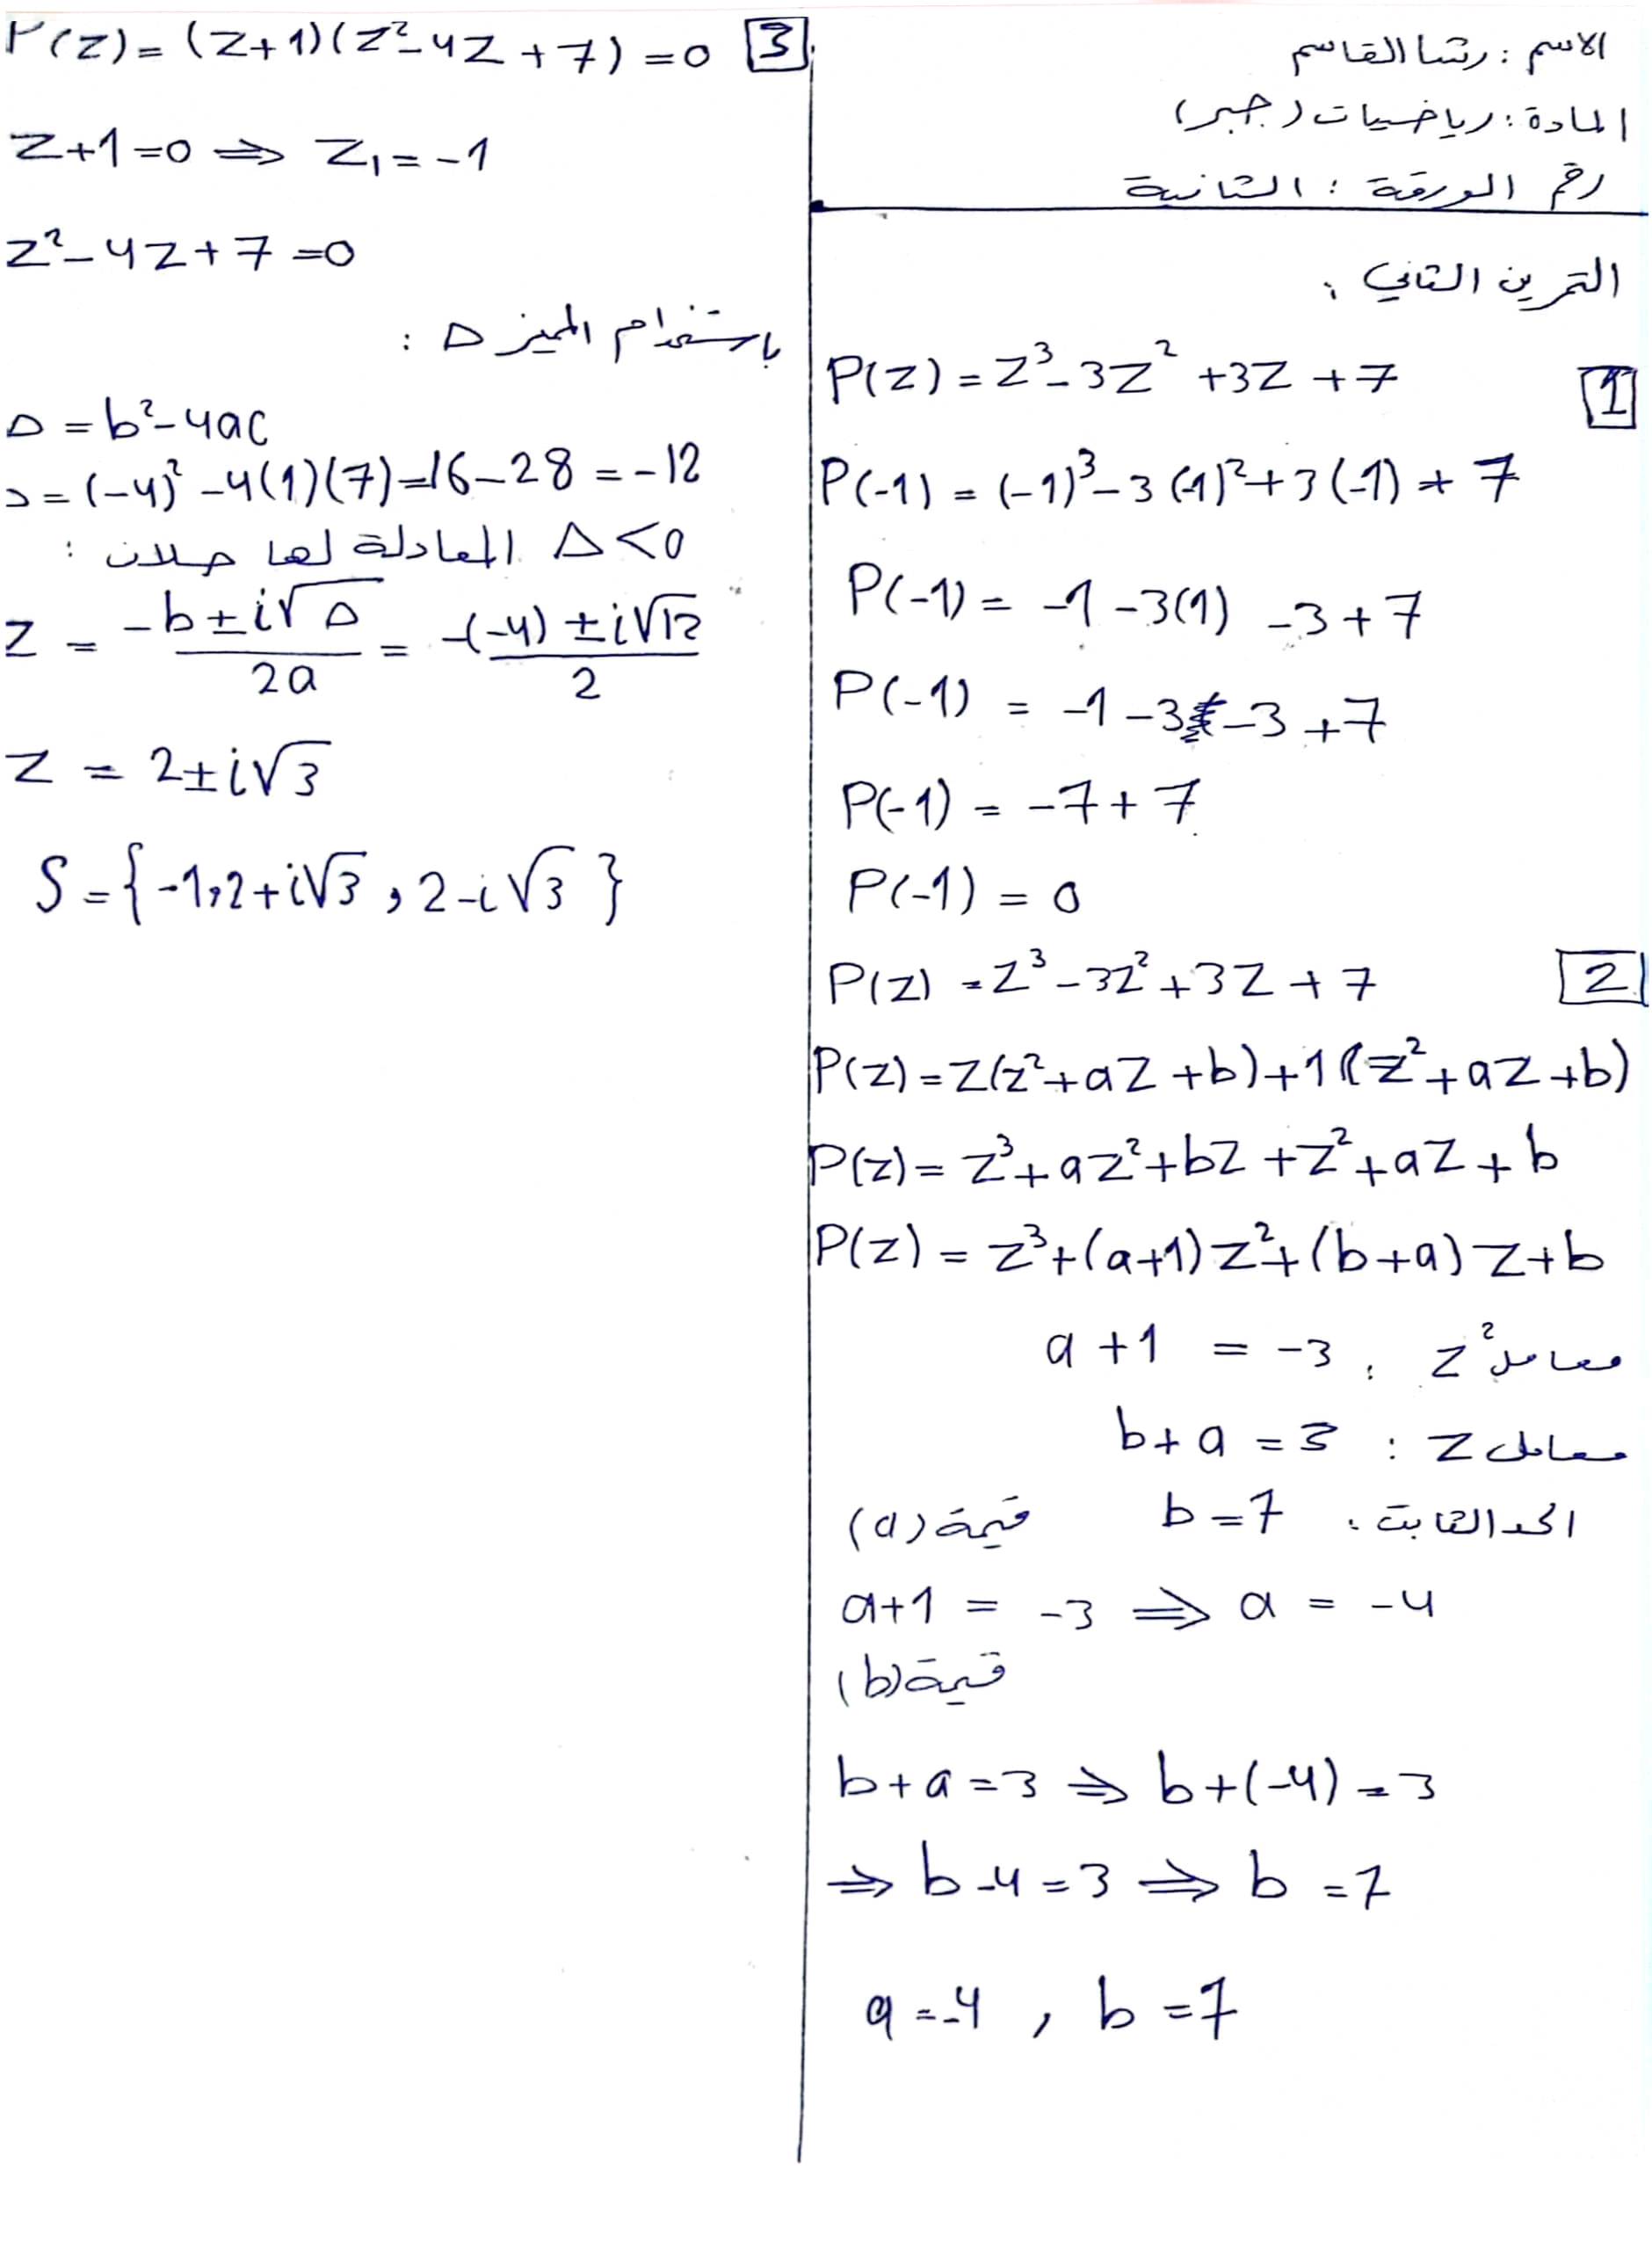 الاسم : رشا القاسم
المادة : رياضيات (جبر)
رقم الورقة : الثانية
التمرين الثاني :
1
P(z) = z³ - 3z² + 3z + 7
P(-1) = (-1)³ - 3(-1)² + 3(-1) + 7
P(-1) = -1 - 3(1) - 3 + 7
P(-1) = -1 - 3 - 3 + 7
P(-1) = -7 + 7
P(-1) = 0
2
P(z) = z³ - 3z² + 3z + 7
P(z) = z(z² + az + b) + 1(z² + az + b)
P(z) = z³ + az² + bz + z² + az + b
P(z) = z³ + (a+1)z² + (b+a)z + b
معامل z² : a + 1 = -3
معامل z : b + a = 3
الحد الثابت : b = 7 قيمة (a)
a + 1 = -3 ⇒ a = -4
قيمة (b)
b + a = 3 ⇒ b + (-4) = 3
⇒ b - 4 = 3 ⇒ b = 7
a = -4 , b = 7
3
P(z) = (z+1)(z² - 4z + 7) = 0
z + 1 = 0 ⇒ z₁ = -1
z² - 4z + 7 = 0
باستخدام المميز Δ :
Δ = b² - 4ac
Δ = (-4)² - 4(1)(7) = 16 - 28 = -12
Δ < 0 المعادلة لها حلان :
z = (-b ± i√Δ)/2a = (-(-4) ± i√12)/2
z = 2 ± i√3
S = {-1, 2 + i√3 , 2 - i√3}